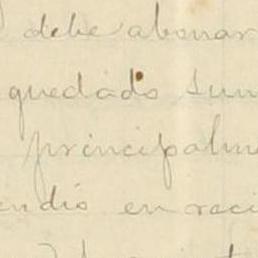 debe abonar
quedado sum
principalm
endió en reci